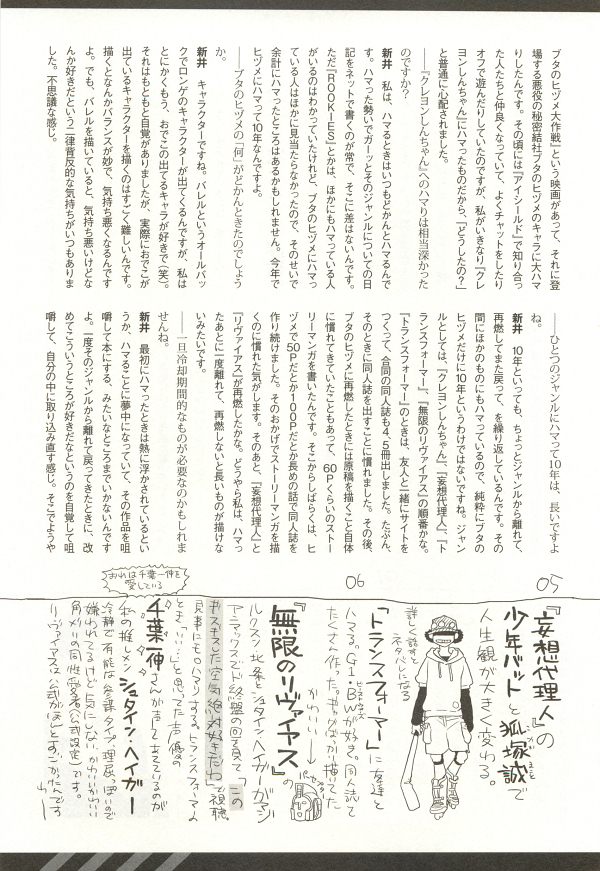 ブタのヒヅメ大作戦』という映画があって、それに登
場する悪役の秘密結社ブタのヒヅメのキャラに大ハマ
りしたんです。その頃には『アイシールド』で知り合っ
た人たちと仲良くなっていて、よくチャットをしたり
オフで遊んだりしていたのですが、私がいきなり『クレ
ヨンしんちゃん』にハマったものだから、「どうしたの?」
と普通に心配されました。
──『クレヨンしんちゃん』へのハマりは相当深かった
のですか?
新井 私は、ハマるときはいつもどかんとハマるんで
す。ハマった勢いでガーッとそのジャンルについての日
記をネットで書くのが常で、そこに差はないんです。
ただ『ROOKIES』とかは、ほかにもハマっている人
がいるのはわかっていたけれど、ブタのヒヅメにハマっ
ている人はほかに見当たらなかったので、そのせいで
余計にハマったところはあるかもしれません。今年で
ヒヅメにハマって10年なんですよ。
──ブタのヒヅメの「何」がどかんときたのでしょう
か。
新井 キャラクターですね。バレルというオールバッ
クでロンゲのキャラクターが出てくるんですが、私は
とにかくもう、おでこの出てるキャラが好きで(笑)。
それはもともと自覚がありましたが、実際におでこが
出ているキャラクターを描くのはすごく難しいんです。
描くとなんかバランスが妙で、気持ち悪くなるんです
よ。でも、バレルを描いていると、気持ち悪いけどな
んか好きだという二律背反的な気持ちがいつもありま
した。不思議な感じ。
──ひとつのジャンルにハマって10年は、長いですよ
ね。
新井 10年といっても、ちょっとジャンルから離れて、
再燃してまた戻って、を繰り返しているんです。その
間にほかのものにもハマっているので、純粋にブタの
ヒヅメだけに10年というわけではないですね。ジャン
ルとしては、『クレヨンしんちゃん』、『妄想代理人』、『ト
ランスフォーマー』、『無限のリヴァイアス』の順番かな。
『トランスフォーマー』のときは、友人と一緒にサイトを
つくって、合同の同人誌も4、5冊出しました。たぶん、
そのときに同人誌を出すことに慣れました。その後、
ブタのヒヅメに再燃したときには原稿を描くこと自体
に慣れてきていたこともあって、60Pくらいのストー
リーマンガを書いたんです。そこからしばらくは、ヒ
ヅメで50Pだとか100Pだとか長めの話で同人誌を
作り続けました。そのおかげでストーリーマンガを描
くのに慣れた気がします。そのあと、『妄想代理人』と
『リヴァイアス』が再燃したかな。どうやら私は、ハマっ
たあとに一度離れて、再燃しないと長いものが描けな
いみたいです。
──一旦、冷却期間的なものが必要なのかもしれま
せんね。
新井 最初にハマったときは熱に浮かされているとい
うか、ハマることに夢中になっていて、その作品を咀
嚼して本にする、みたいなところまでいかないんです
よ。一度そのジャンルから離れて戻ってきたときに、改
めてこういうところが好きだなというのを自覚して咀
嚼して、自分の中に取り込み直す感じ。そこでようや
05
『妄想代理人』の
少年バットと狐塚誠で
人生観が大きく変わる。
詳しく話すと
ネタバレになる
06
『トランスフォーマー』に友達と
ハマる。G1・BWが好き。同人誌で
たくさん作った。ギャグばかり描いてた
かわいい→
『無限のリヴァイアス』の
ルクスン北条とシュタイン・ヘイガーがマジ
アニマックスで
ギスギスした空気絶対好きだわ」で視聴。
見事にもハマりする。トランスフォーマーの
千葉一伸さんが
おれは千葉一伸を
愛している
私の推しメン シュタイン・ヘイガー
冷静で有能な参謀タイプ、理屈っぽいので
嫌われてるけど気にしない、かわいいかわいい
角メガネの同性愛者(公式設定)です。